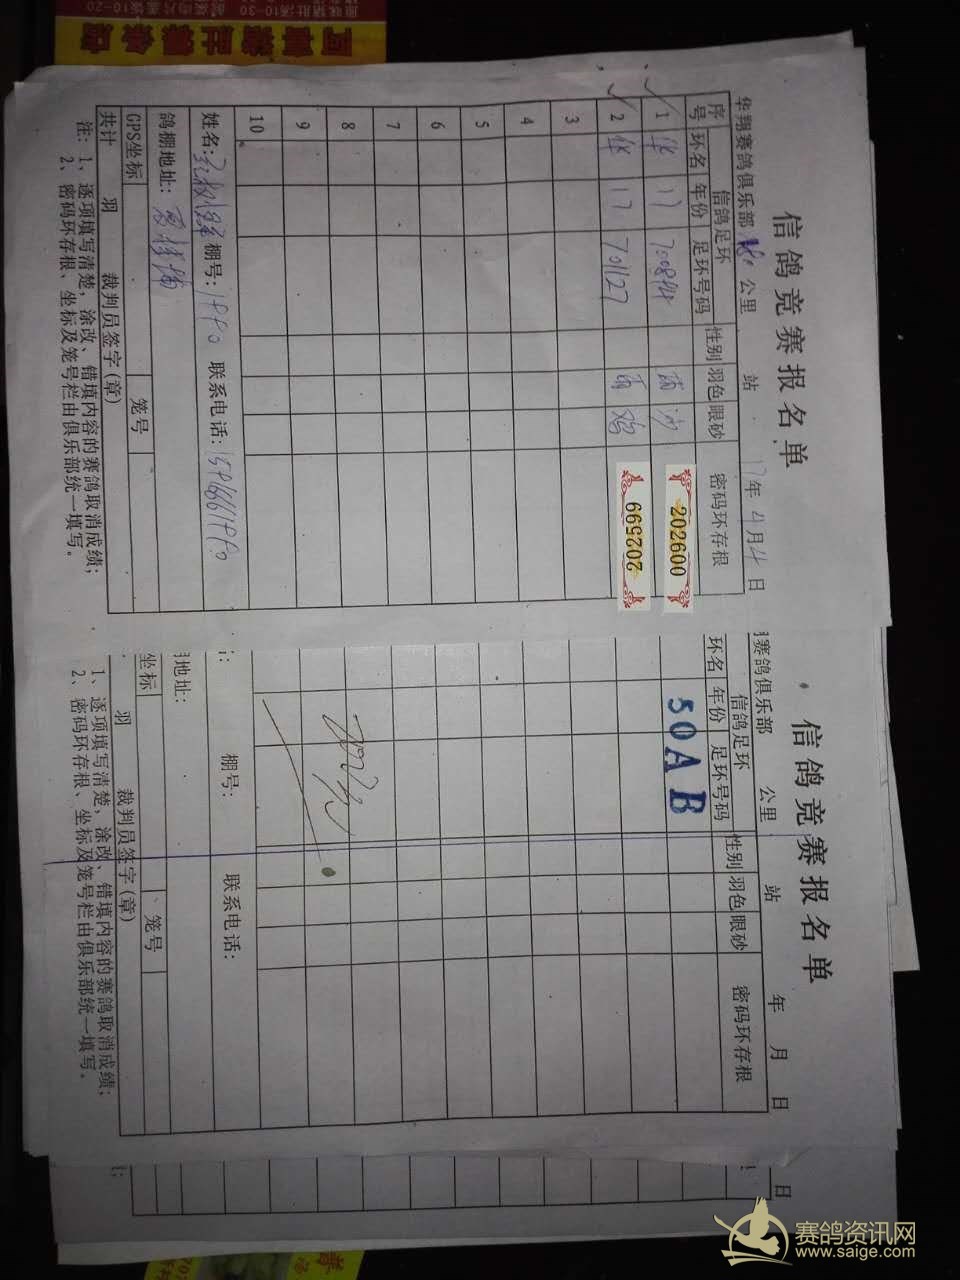 信鸽竞赛报名单
华翔赛鸽俱乐部 公里 站 17年4月4日
序号 信鸽足环 性别 羽色 眼砂 密码环存根
环名 年份 足环号码
1 华 17 雨 202600
2 华 17 701127 雨 202599
3
4
5
6
7
8
9
10
姓名: 棚号: 联系电话:
鸽棚地址:
GPS坐标 笼号
共计 羽 裁判员签字(章)
注: 1、逐项填写清楚,涂改、错填内容的赛鸽取消成绩;
2、密码环存根、坐标及笼号栏由俱乐部统一填写。
信鸽竞赛报名单
赛鸽俱乐部 公里 站 年 月 日
信鸽足环 性别 羽色 眼砂 密码环存根
环名 年份 足环号码
50AB
棚号: 联系电话:
地址:
坐标 笼号
羽 裁判员签字(章)
1、逐项填写清楚,涂改、错填内容的赛鸽取消成绩;
2、密码环存根、坐标及笼号栏由俱乐部统一填写。
日
赛鸽资讯网
www.saige.com